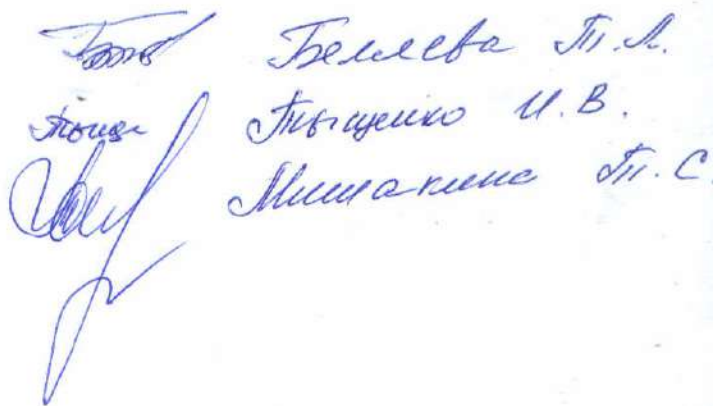 Беляева Т.Л.
Тыщ Тыщенко И.В.
Мишакина Т.С.